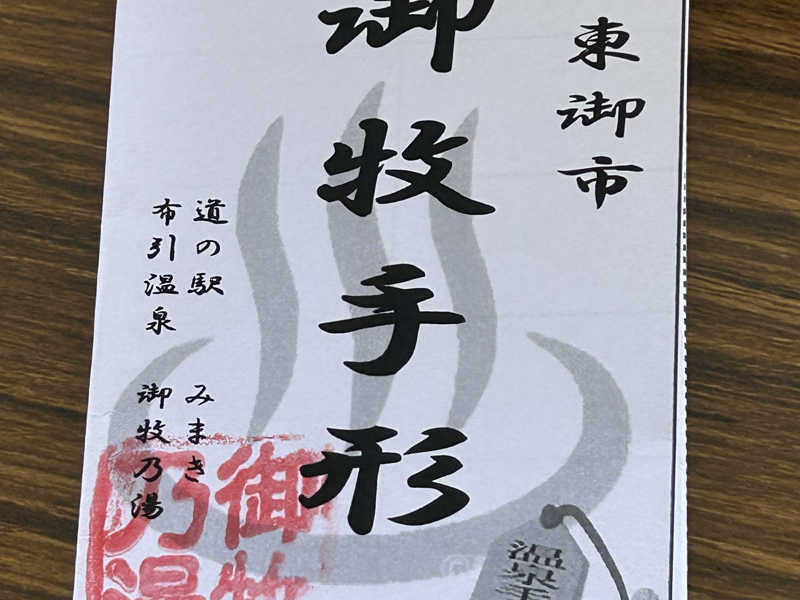 東御市
御牧手形
道の駅 みまき
布引温泉 御牧乃湯
御牧
乃湯
温泉手